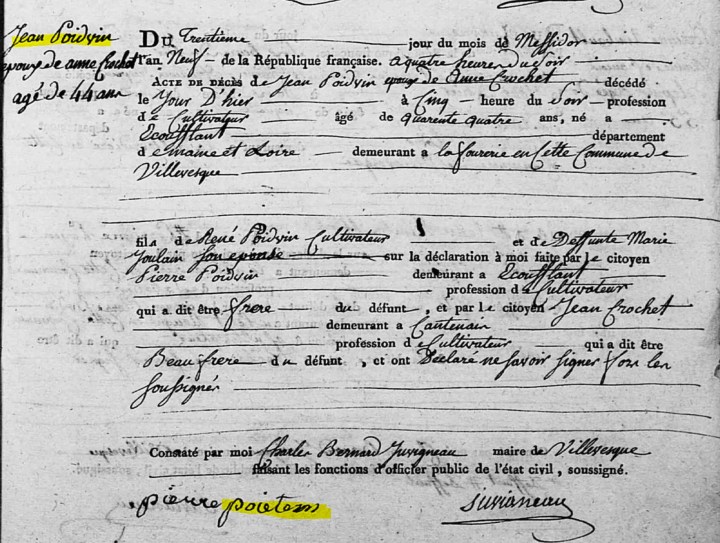 Jean Poidvin
epoux de anne Crochet
agé de 44 ans
Du trentieme jour du mois de Messidor
l'an Neuf de la République française. a quatre heures du soir
Acte de décès de Jean Poidvin epoux de anne Crochet décédé
le Jour D'hier à Cinq heure du Soir profession
de Cultivateur âgé de quarente quatre ans, né a
Ecoufflant département
de maine et Loire demeurant a la en Cette Commune de
Villevesque
fils de René Poidvin Cultivateur et de Deffunte Marie
Joulain Son epouse sur la déclaration à moi faite par le citoyen
Pierre Poidvin demeurant a Ecoufflant
profession de Cultivateur
qui a dit être frere du défunt, et par le citoyen Jean Crochet
demeurant a Cantenain
profession de Cultivateur qui a dit être
Beaufrere du défunt, et ont Déclaré ne savoir signer
soussignés
Constaté par moi Charles Bernard Juvigneau maire de Villevesque
faisant les fonctions d'officier public de l'état civil, soussigné.
pierre poietem juvigneau